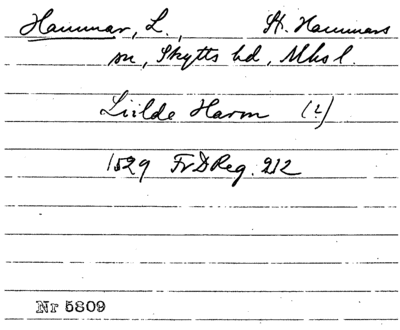 Hammar, L., St. Hammars
sn, Skytts hd, Mhs l.
Lilde Harm (L)
1529 FrDReg. 212
Nr 5809